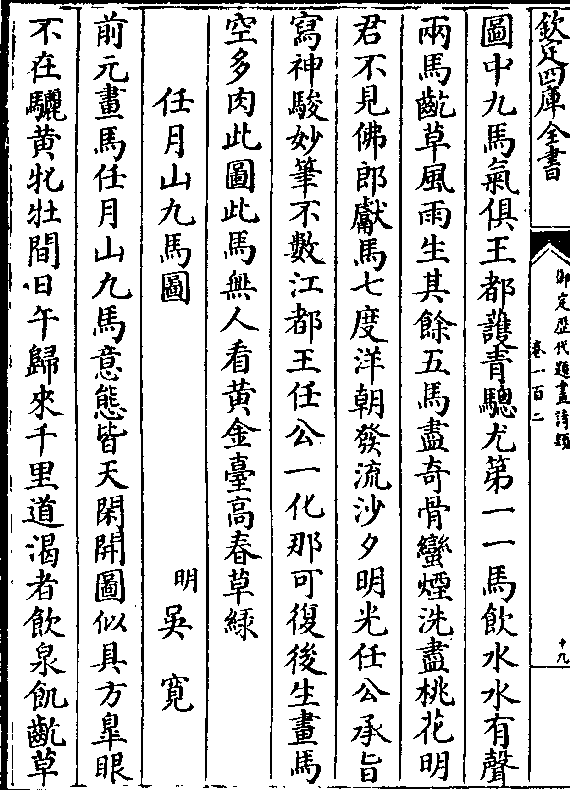 欽定四庫全書
御定歷代題畫詩類
卷一百二
十九
圖中九馬氣俱王都護青驄尤第一一馬飲水水有聲
兩馬齕草風雨生其餘五馬盡奇骨蠻煙洗盡桃花明
君不見佛郎獻馬七度洋朝發流沙夕明光任公承旨
寫神駿妙筆不數江都王任公一化那可復後生畫馬
空多肉此圖此馬無人看黃金臺高春草綠
任月山九馬圖
明 吳寛
前元畫馬任月山九馬意態皆天閑開圖似具方臯眼
不在驪黃牝牡間日午歸來千里道渴者飲泉飢齕草